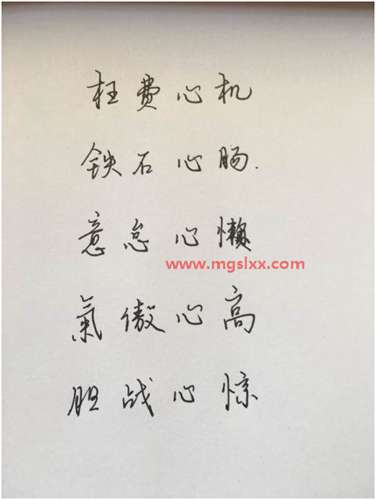 枉费心机
铁石心肠.
意怠心懒
www.mgslxx.com
氣傲心高
胆战心惊